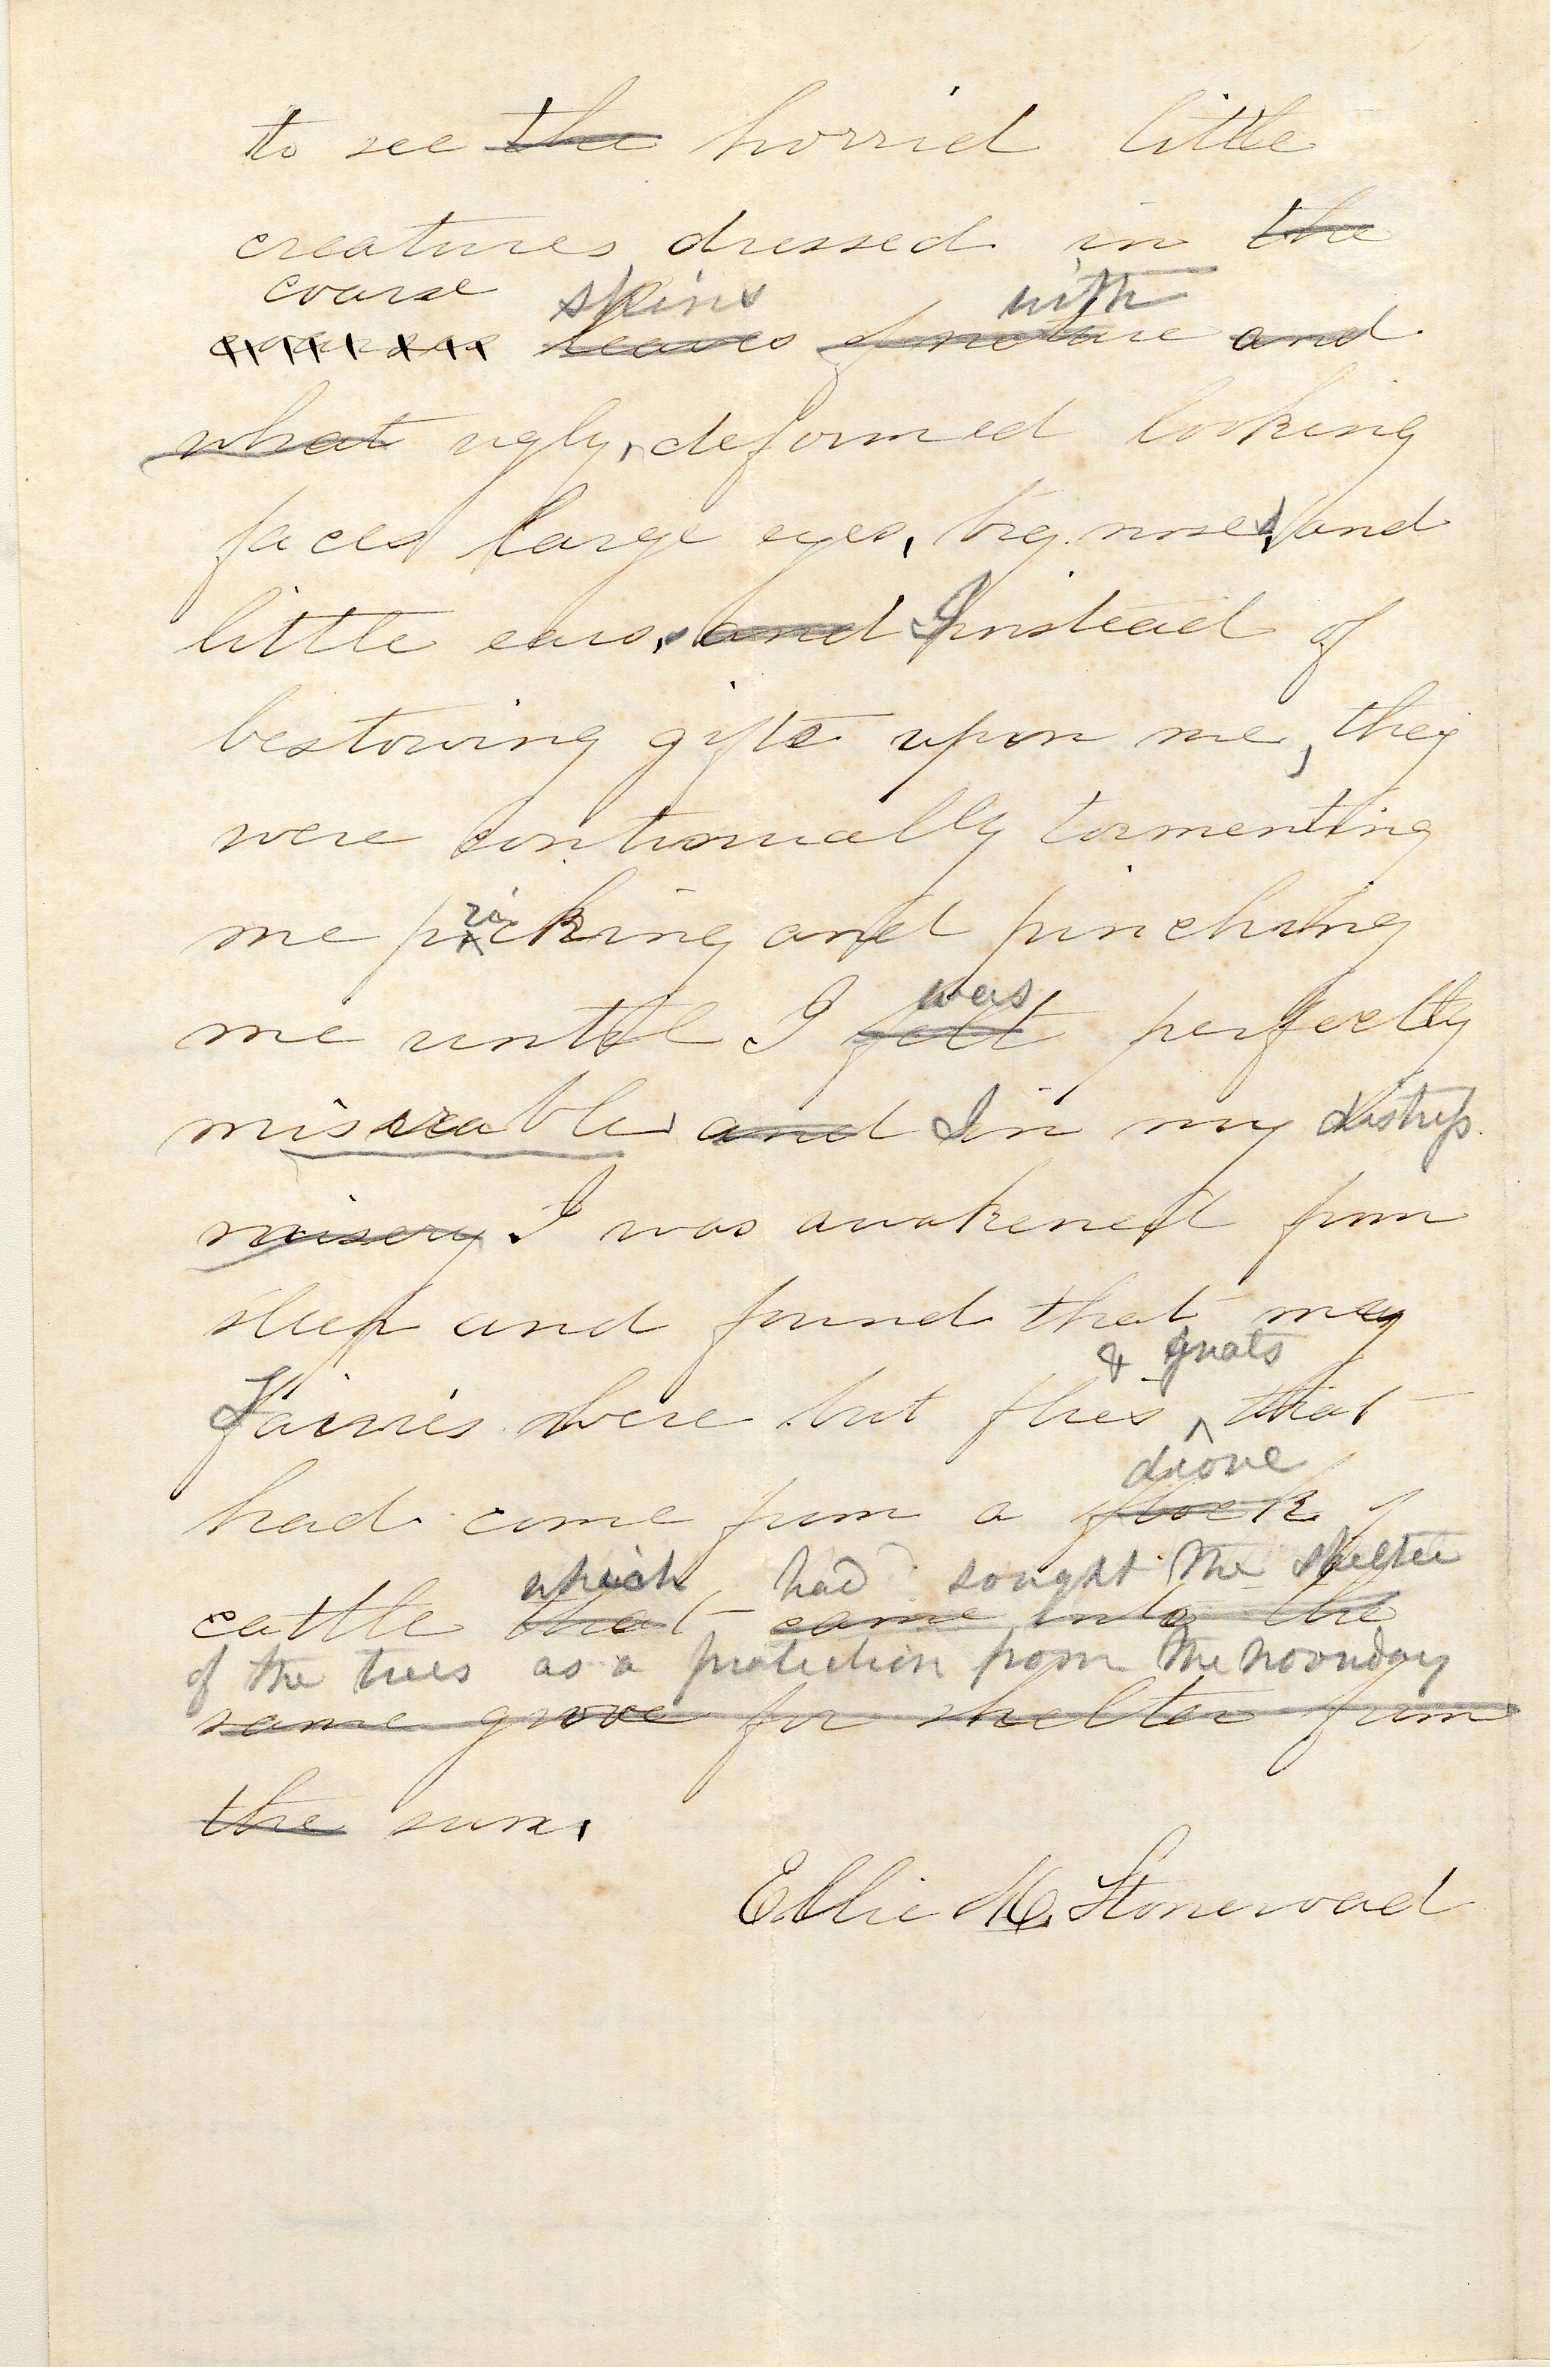 to see the horrid little
creatures dressed in the
coarse skins with
leaves of nature and
what ugly, deformed looking
faces large eyes, big noses, and
little ears, and Instead of
bestowing gifts upon me, they
were continually tormenting
me pricking and pinching
was
me until I felt perfectly
miserable, and In my distress
misery I was awakened from
sleep and found that my
& gnats
Fairies were but flies ^ that
drove
had come from a flock of
which had sought the shelter
cattle that came into the
of the trees as a protection from the noonday
same grove for shelter from
the sun.
Ellie M. Stoneroad